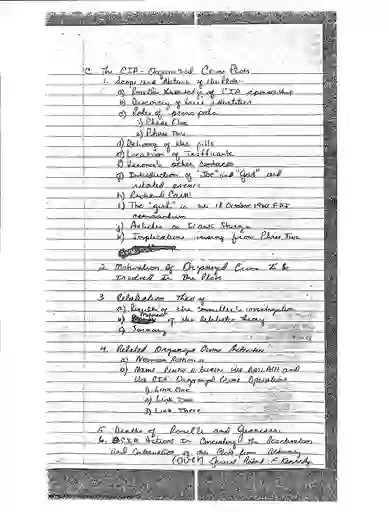 C. The CIA - Organized Crime Plots
1. Scope and Nature of the Plots
a) Roselli's Knowledge of CIA sponsorship
b) Discovery of true identities
c) Roles of principals
1) Phase One
2) Phase Two
d) Delivery of the pills
e) Location of Trafficante
f) Varona's other contacts
g) Introduction of "Joe" and "Gold" and
related events
h) Richard Cain
i) The "girl" in the 18 October 1960 FBI
memorandum
j) Articles on
k) Implications from Phase Two
2. Motivation of Organized Crime to be
Involved In the Plots
3. Retaliation Theory
a) of the committee's investigation
b) of the retaliation theory
c) Summary
4. Related Organized Crime Activities
a)
b) between the and
the CIA Organized Crime Operations
1) Link One
2) Link Two
3) Link Three
5. Deaths of Roselli and Giancana
6. Actions In Concealing The
and of the Plots from Attorney
(OVER) General Robert F. Kennedy